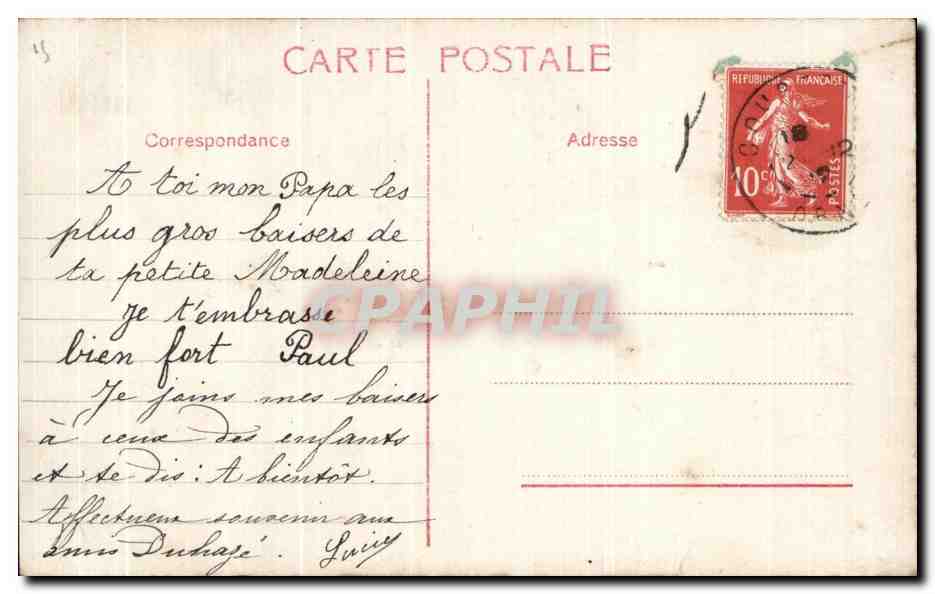 CARTE POSTALE
Correspondance
Adresse
REPUBLIQUE FRANÇAISE
10 c
POSTES
A toi mon Papa les
plus gros baisers de
ta petite Madeleine
Je t'embrasse
bien fort Paul
Je joins mes baisers
à ceux des enfants
et te dis : A bientôt.
Affectueux souvenir aux
amis
CPAPHIL